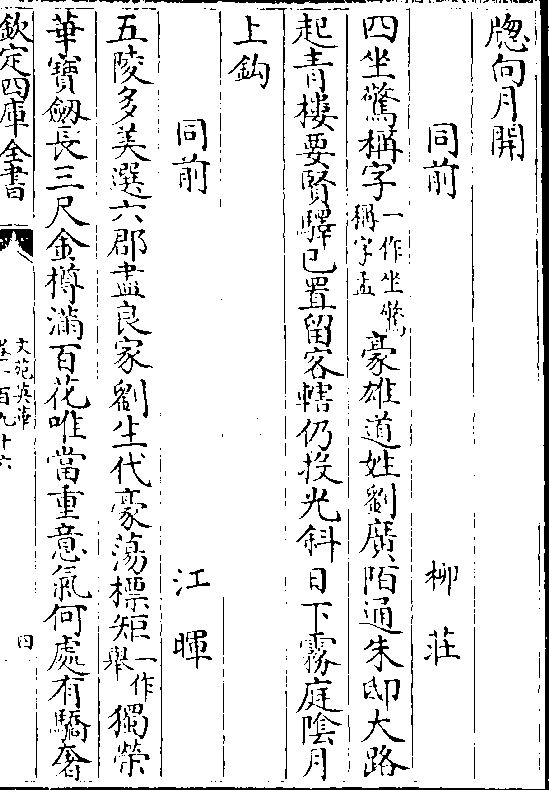 牕向月開
同前　柳莊
四坐驚稱字一作坐驚稱字孟豪雄道姓劉廣陌通朱邸大路
起青樓要賢驛已置留客轄仍投光斜日下霧庭陰月
上鈎
同前　江暉
五陵多美選六郡盡良家劉生代豪蕩標矩一作舉獨榮
華寶劔長三尺金樽滿百花唯當重意氣何處有驕奢
欽定四庫全書
文苑英華
卷一百九十六
四